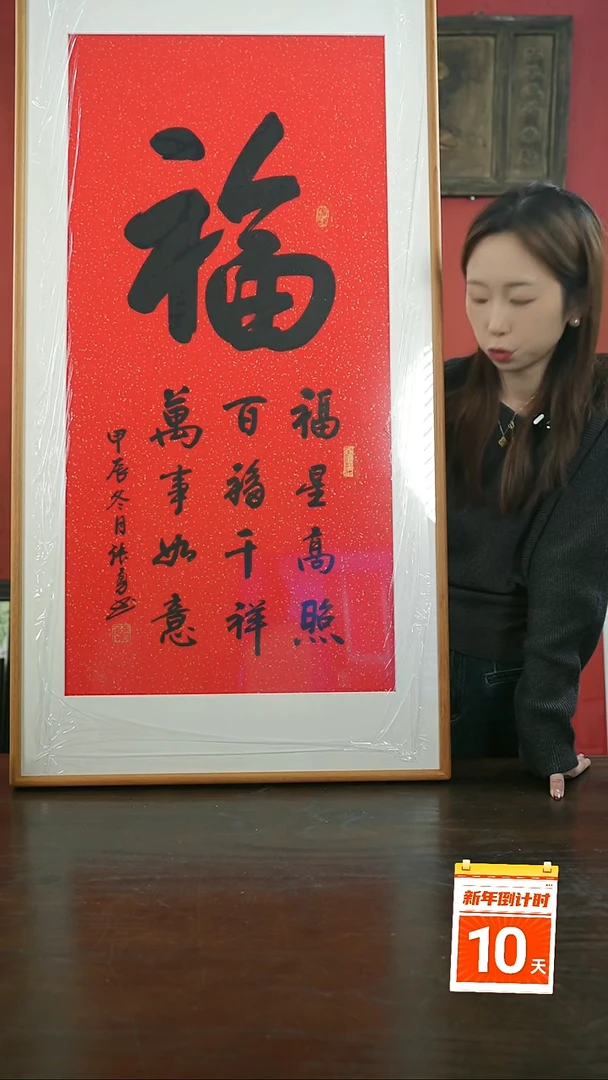 福
福星高照
百福千祥
萬事如意
甲辰冬月張勇書
新年倒计时
10天